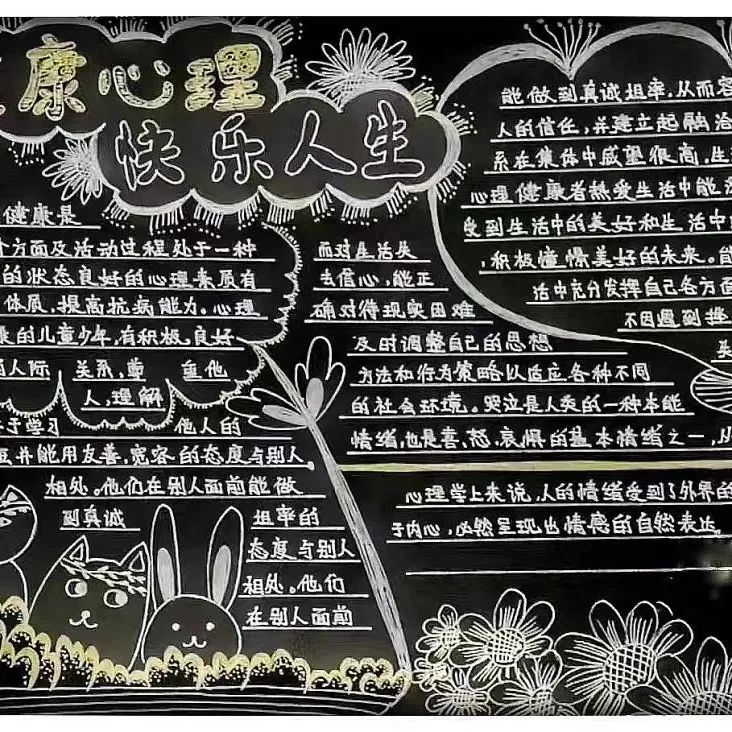 康心理
快乐人生
健康是
方面及活动过程处于一种
的状态良好的心理素质有
体质,提高抗病能力。心理
的儿童少年,有积极,良好
人际 关系,尊 重他
人,理解
于学习 他人的
并能用友善,宽容的态度与别人
相处。他们在别人面前能做
到真诚 坦率的
态度与别人
相处。他们
在别人面前
而对生活失
去信心,能正
确对待现实困难
及时调整自己的思想
方法和行为策略以适应各种不同
的社会环境。哭泣是人类的一种本能
情绪,也是喜,怒,哀惧的基本情绪之一,从
心理学上来说,人的情绪受到了外界的
于内心,必然呈现出情感的自然表达。
能做到真诚坦率,从而容
人的信任,并建立起融洽
系在集体中威望很高,生
心理健康者热爱生活中能
受到生活中的美好和生活中
,积极憧憬美好的未来。能
活中充分发挥自己各方面
不因遇到挫